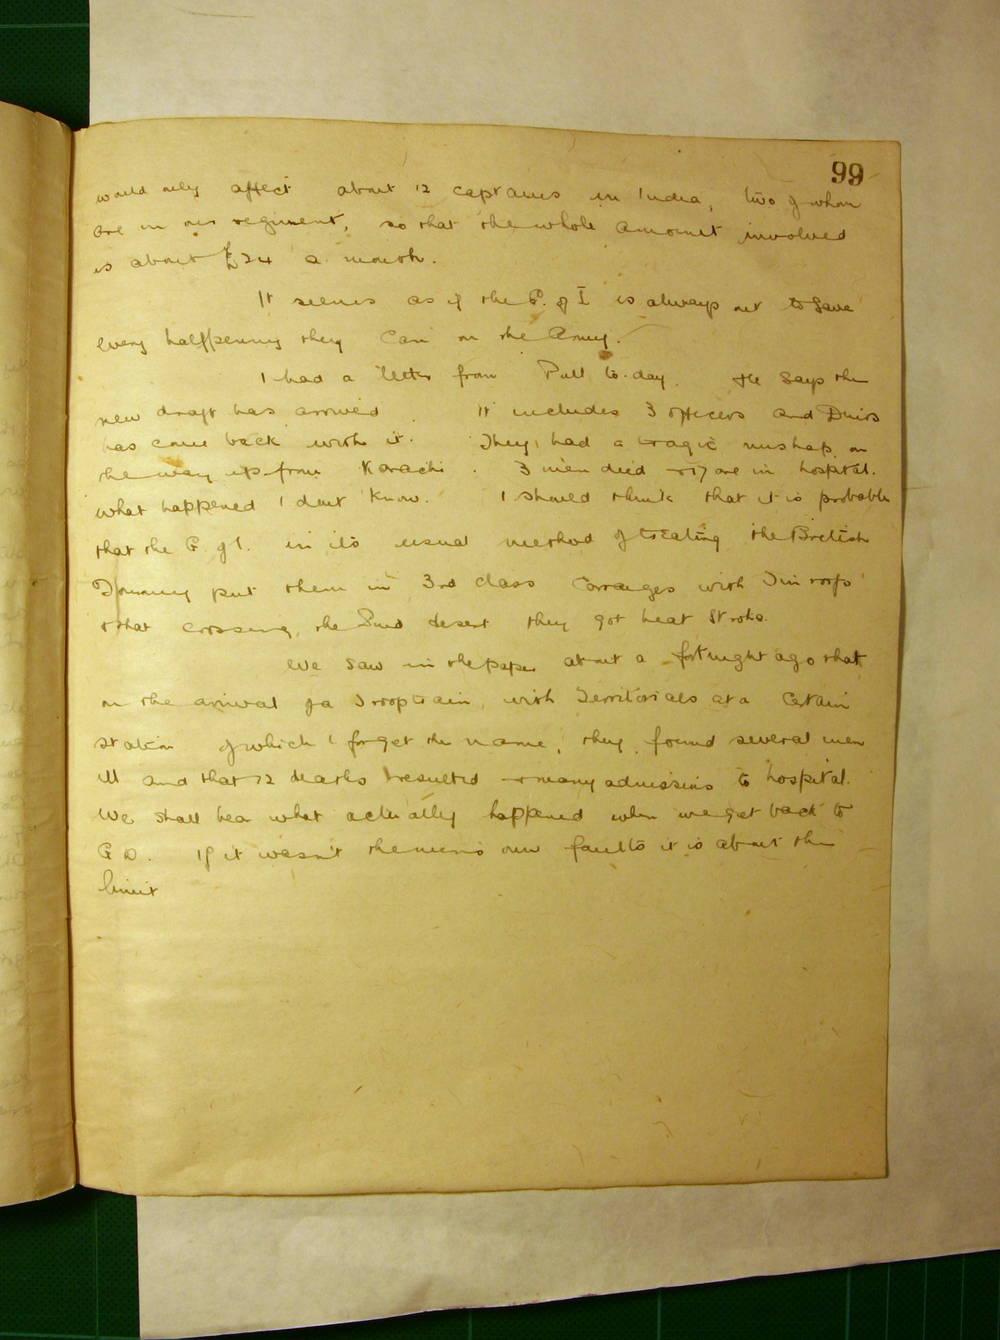 99
would only affect about 12 captains in India, two of whom
are in our regiment, so that the whole amount involved
is about £24 a month.
It seems as if the G. of I is always out to save
every halfpenny they can on the Army.
I had a letter from Pull to-day. He says the
new draft has arrived It includes 3 officers and
has come back with it. They had a tragic mishap on
the way up from Karachi. 3 men died + 17 are in hospital.
what happened I dont know. I should think that it is probable
that the G of I. in its usual method of treating the British
Tommy put them in 3rd class carraiges with Tin roofs
+ that crossing the Sind desert they got heat stroke.
We saw in the paper about a fortnight ago that
on the arrival of a Troop train with Territorials at a certain
station of which I forget the name, they found several men
ill and that 12 deaths resulted + many admissions to hospital.
We shall hear what actually happened when we get back to
G D. If it wasn't the men's own faults it is about the
limit